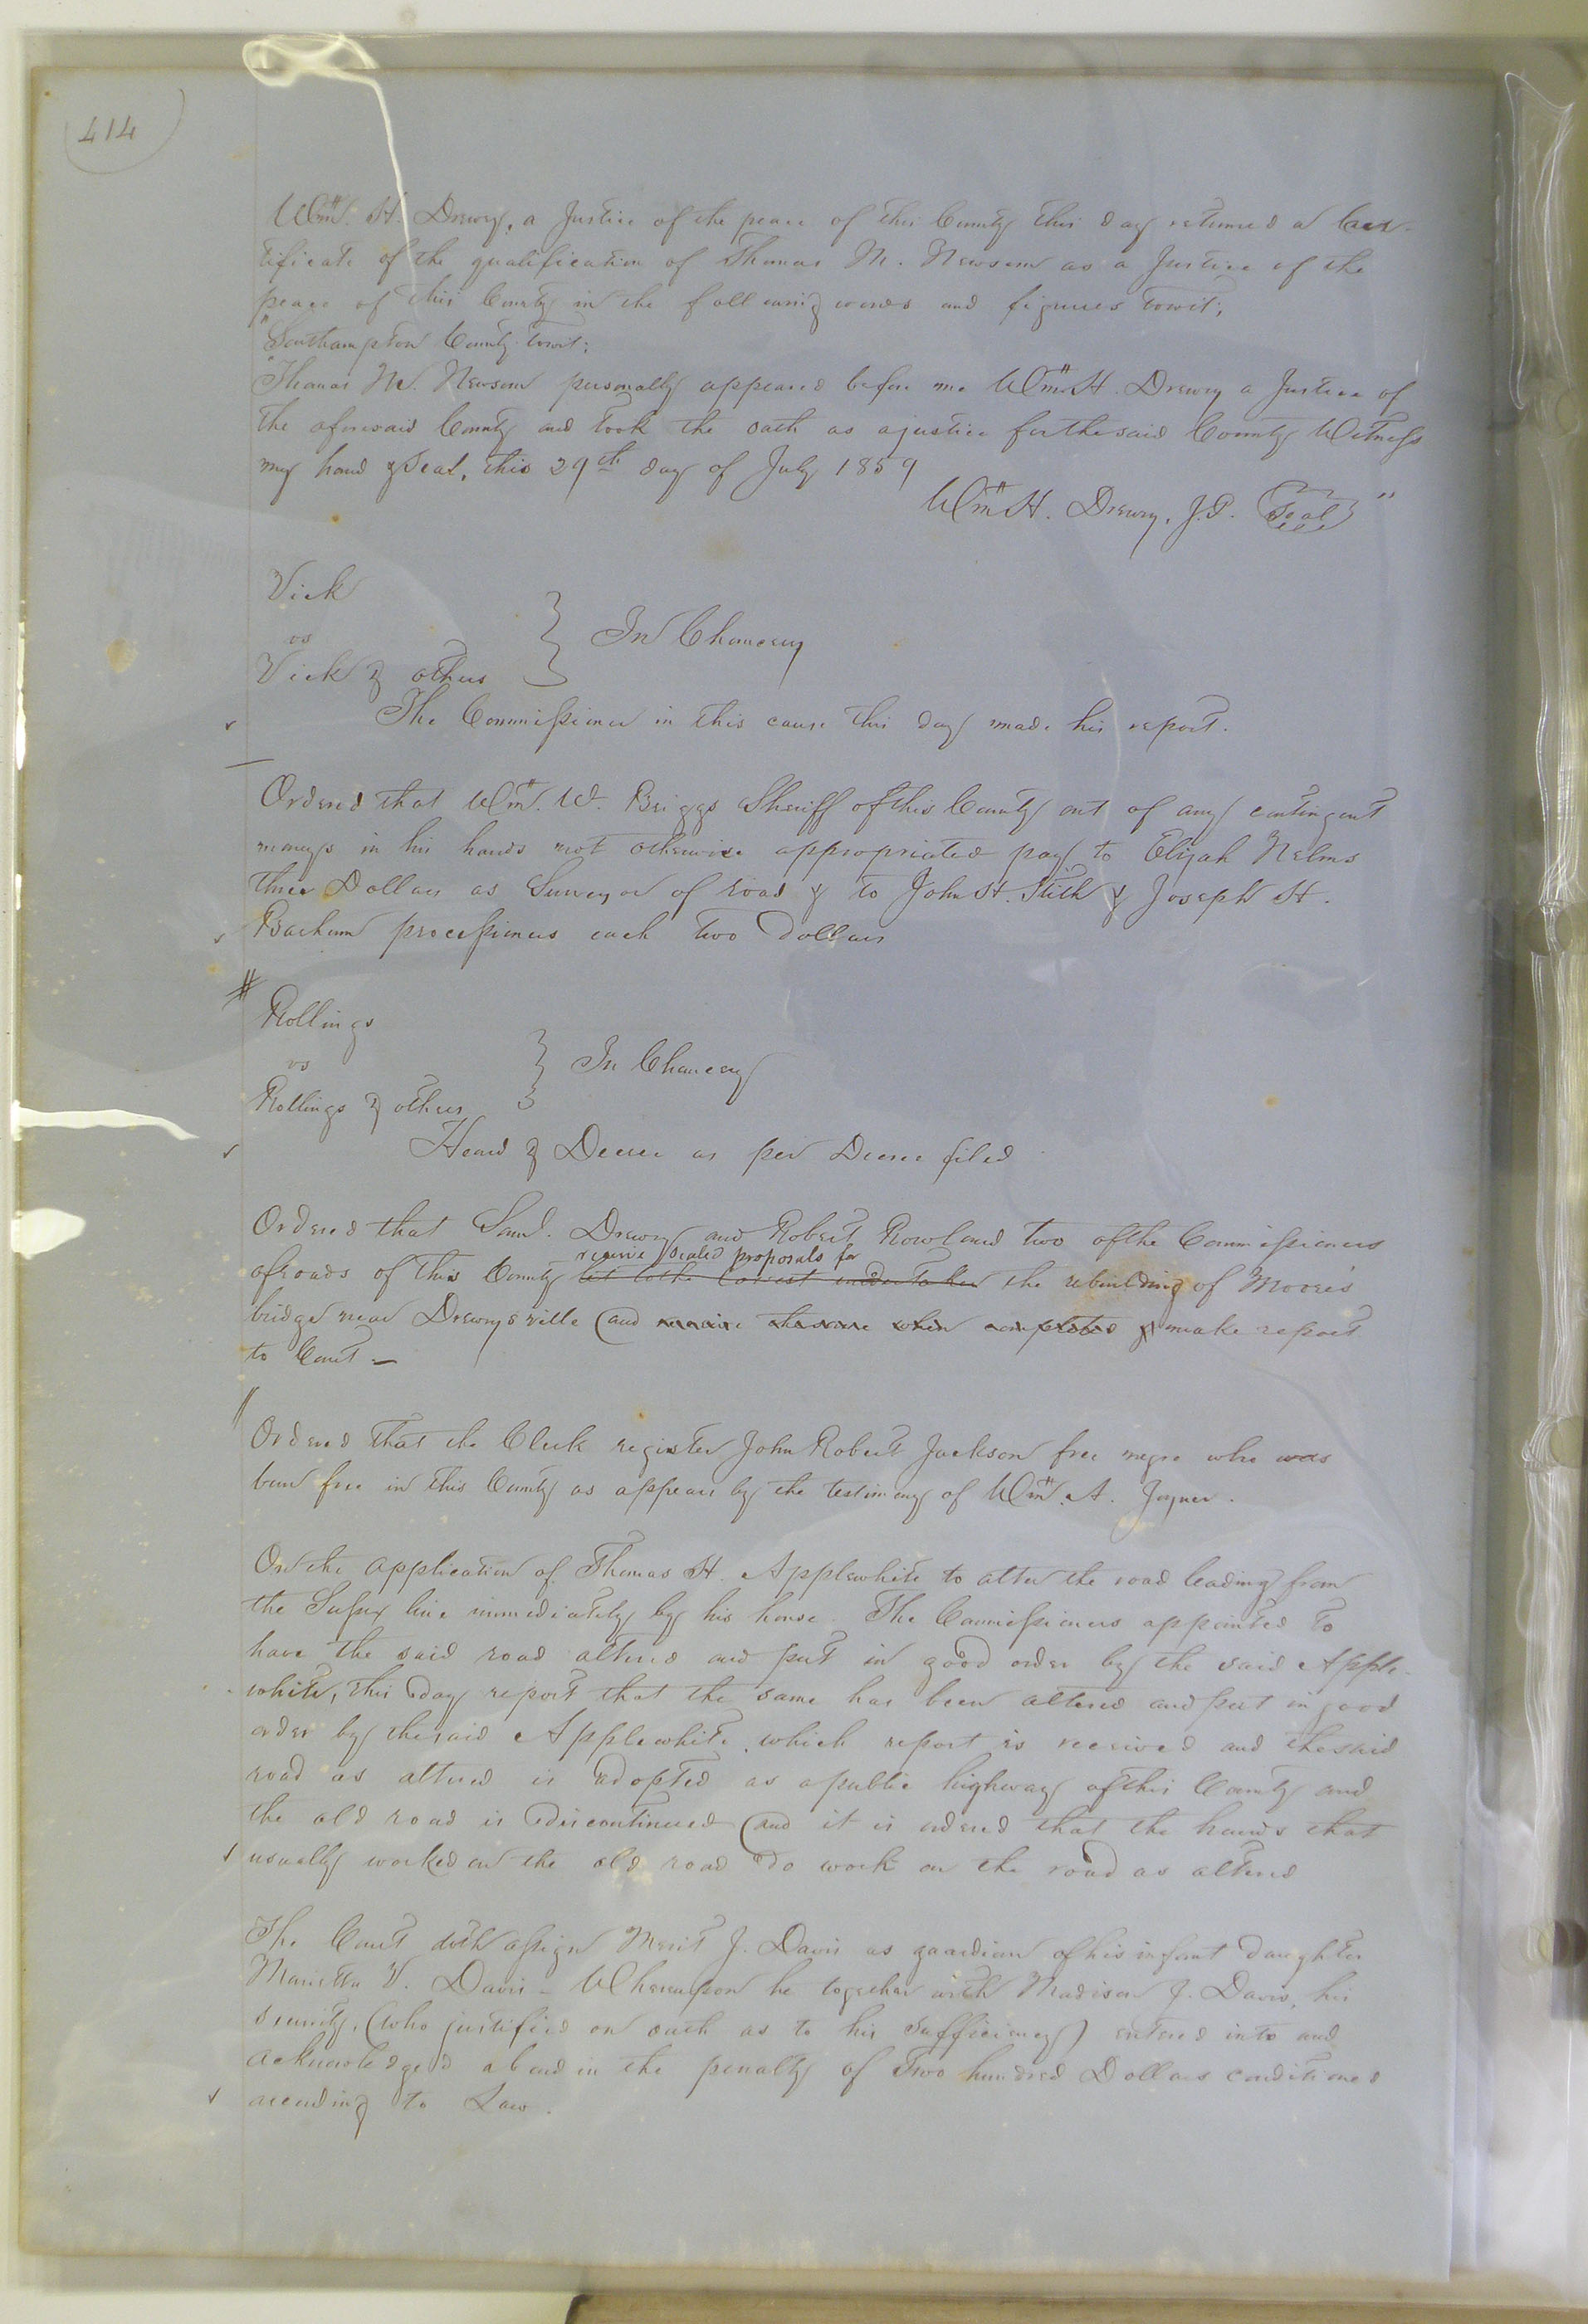 414
Wm. H. Drewry, a Justice of the peace of this County this day returned a Cer-
tificate of the qualification of Thomas M. Newsom as a Justice of the
peace of this County in the following words and figures towit;
"Southampton County towit;
"Thomas M. Newsom personally appeared before me Wm. H. Drewry a Justice of
the aforesaid County and took the oath as a justice for the said County Witness
my hand & Seal, this 29th day of July 1859
Wm. H. Drewry, J.P. Seal"
Vick
vs
Vick & others } In Chancery
The Commissioner in this cause this day made his report.
Ordered that Wm. W. Briggs Sheriff of this County out of any contingent
moneys in his hands not otherwise appropriated pay to Elijah Nelms
three Dollars as Surveyor of road & to John H. Stith & Joseph H.
Barham processioners each two Dollars
Rollings
vs
Rollings & others } In Chancery
Heard & Decree as per Decree filed
Ordered that Saml. Drewry and Robert Rowland two of the Commissioners
receive sealed proposals for
of roads of this County let to the lowest undertaker the rebuilding of Moore's
bridge near Drewrysville (and receive the same when completed & make report
to Court —
Ordered that the Clerk register John Robert Jackson free negro who was
born free in this County as appears by the testimony of Wm. A. Joyner.
On the application of Thomas H. Applewhite to alter the road leading from
the Sussex line immediately by his house. The Commissioners appointed to
have the said road altered and put in good order by the said Apple-
white, this day report that the same has been altered and put in good
order by the said Applewhite, which report is received and the said
road as altered is adopted as a public highway of this County and
the old road is discontinued (and it is ordered that the hands that
usually worked on the old road do work on the road as altered
The Court doth assign Merit J. Davis as guardian of his infant daughter
Marietta V. Davis – Whereupon he together with Madison J. Davis, his
security, (who justified on oath as to his sufficiency) entered into and
acknowledged a bond in the penalty of Two hundred Dollars conditioned
according to Law.